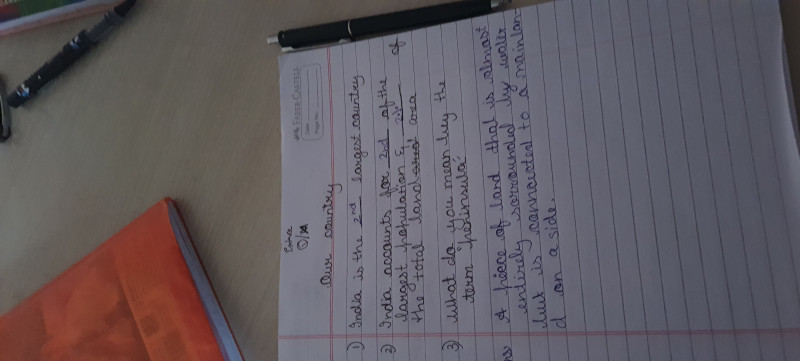 FABER-CASTELL
Date
Page No.
Our country
1) India is the 2nd largest country
2) India accounts for 2nd of the
largest population & of
the total land area
3) What do you mean by the
term "peninsula"
Ans A piece of land that is almost
entirely sorrounded by water
but is connected to a mainlan-
d on a side.